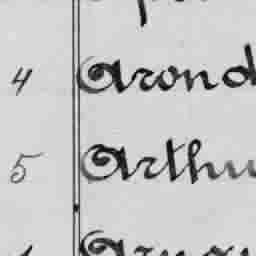 4 Arond
5 Arthu